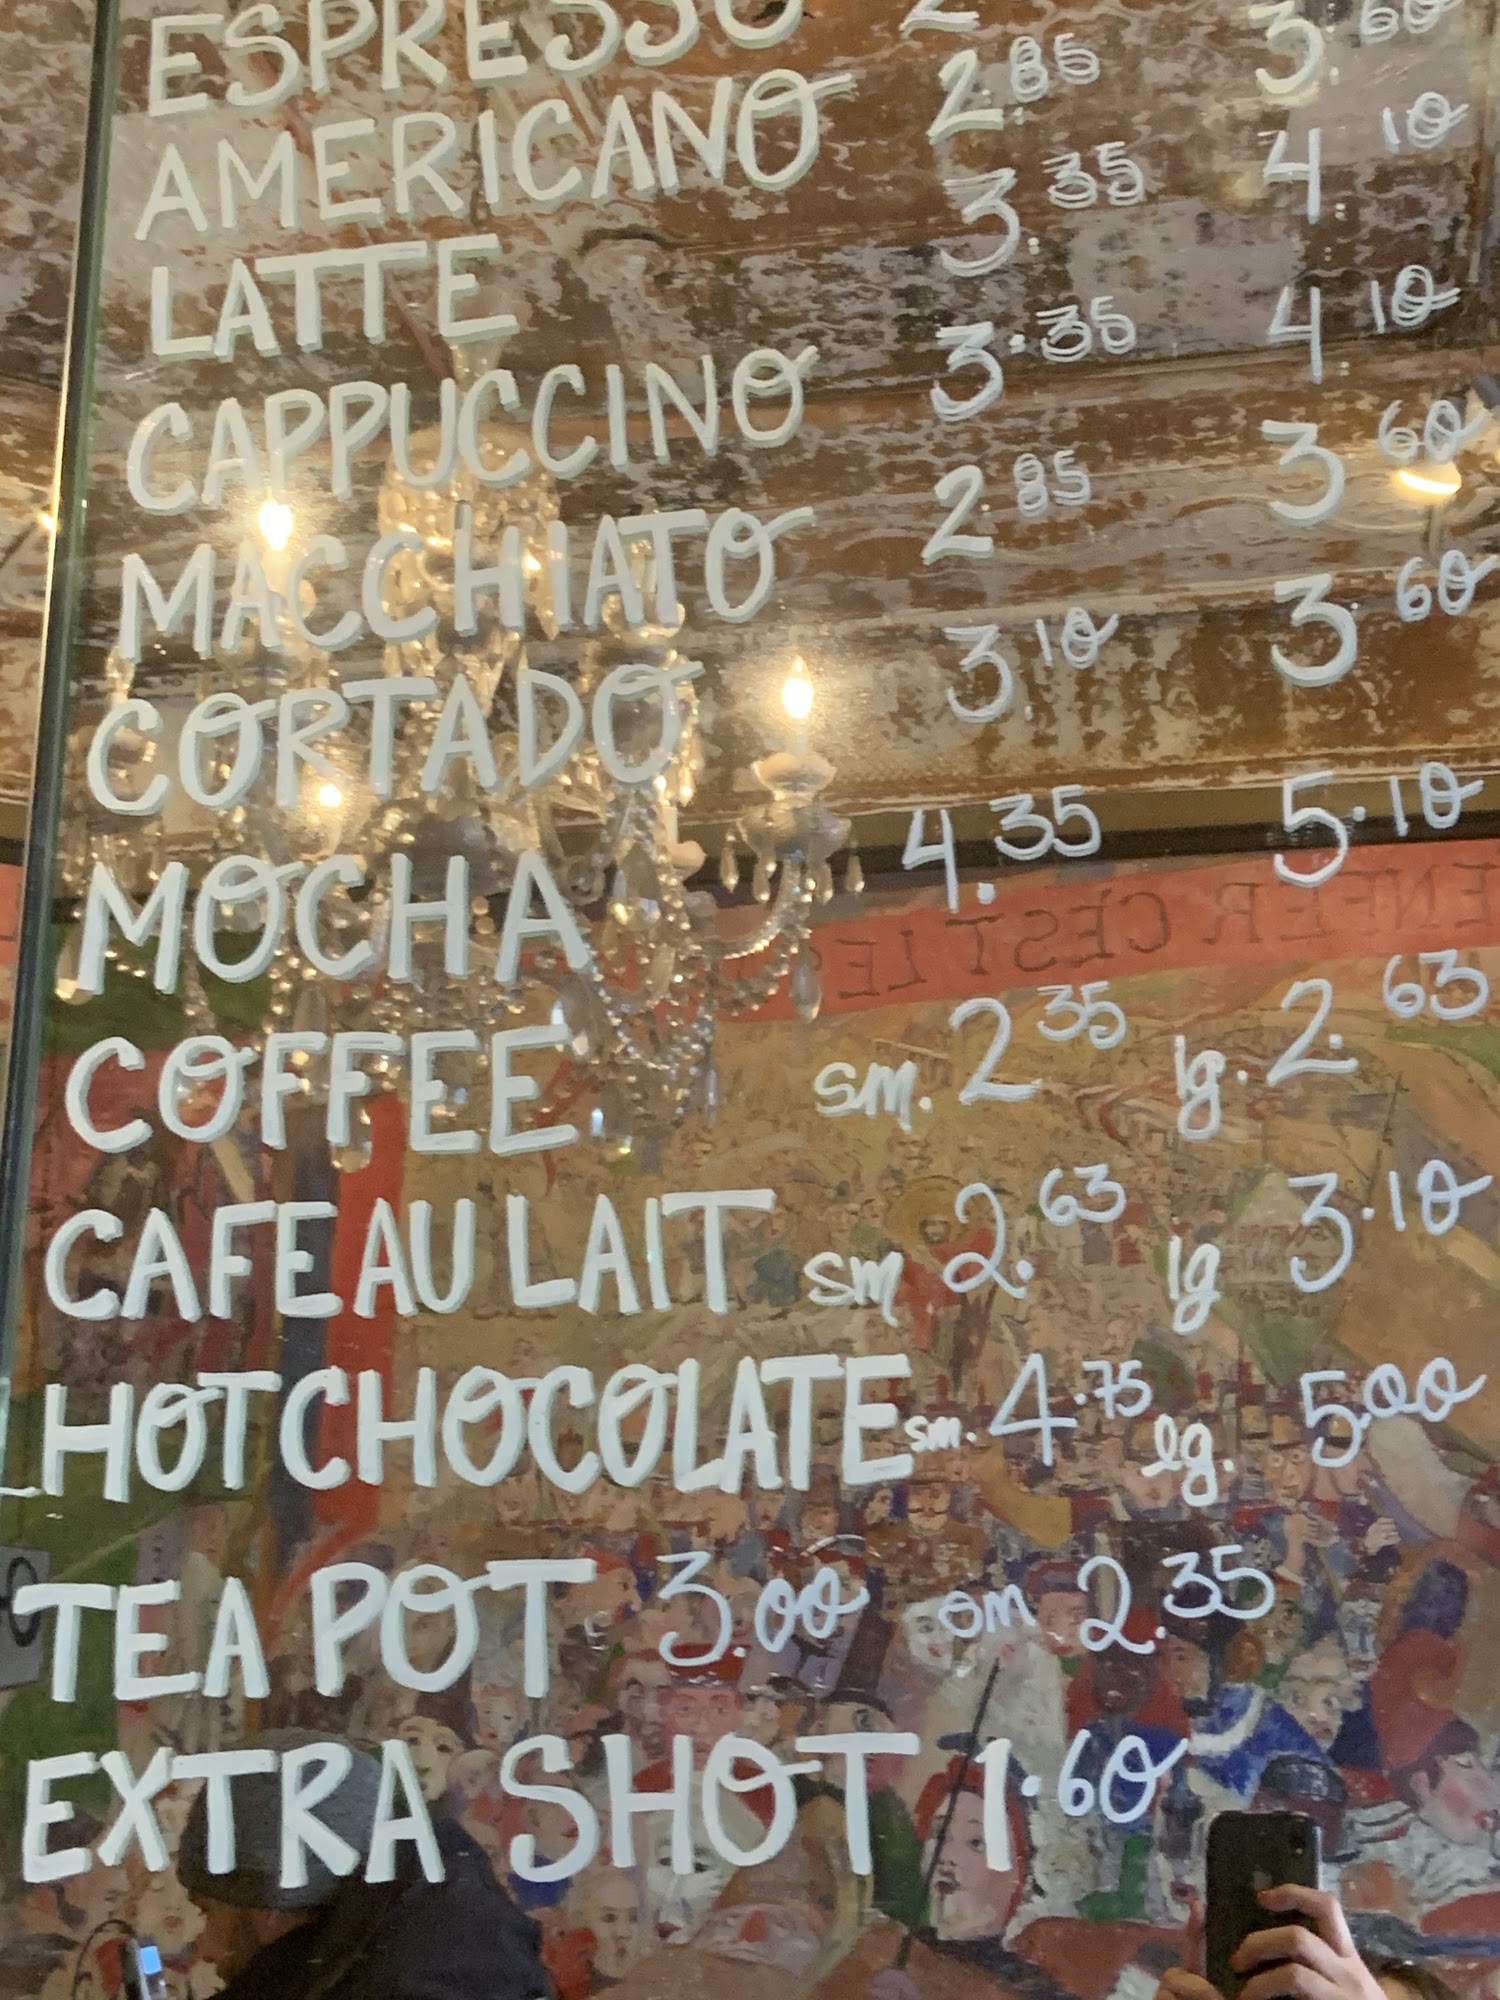 ESPRESSO 2
AMERICANO 2.85 3.60
LATTE 3.35 4.10
CAPPUCCINO 3.35 4.10
MACCHIATO 2.85 3.60
CORTADO 3.10 3.60
MOCHA 4.35 5.10
ENFER C'EST LES
COFFEE sm. 2 35 lg. 2.63
CAFE AU LAIT sm 2.63 lg 3.10
HOT CHOCOLATE sm. 4.75 lg. 5.00
TEA POT 3.00 om 2.35
EXTRA SHOT 1.60